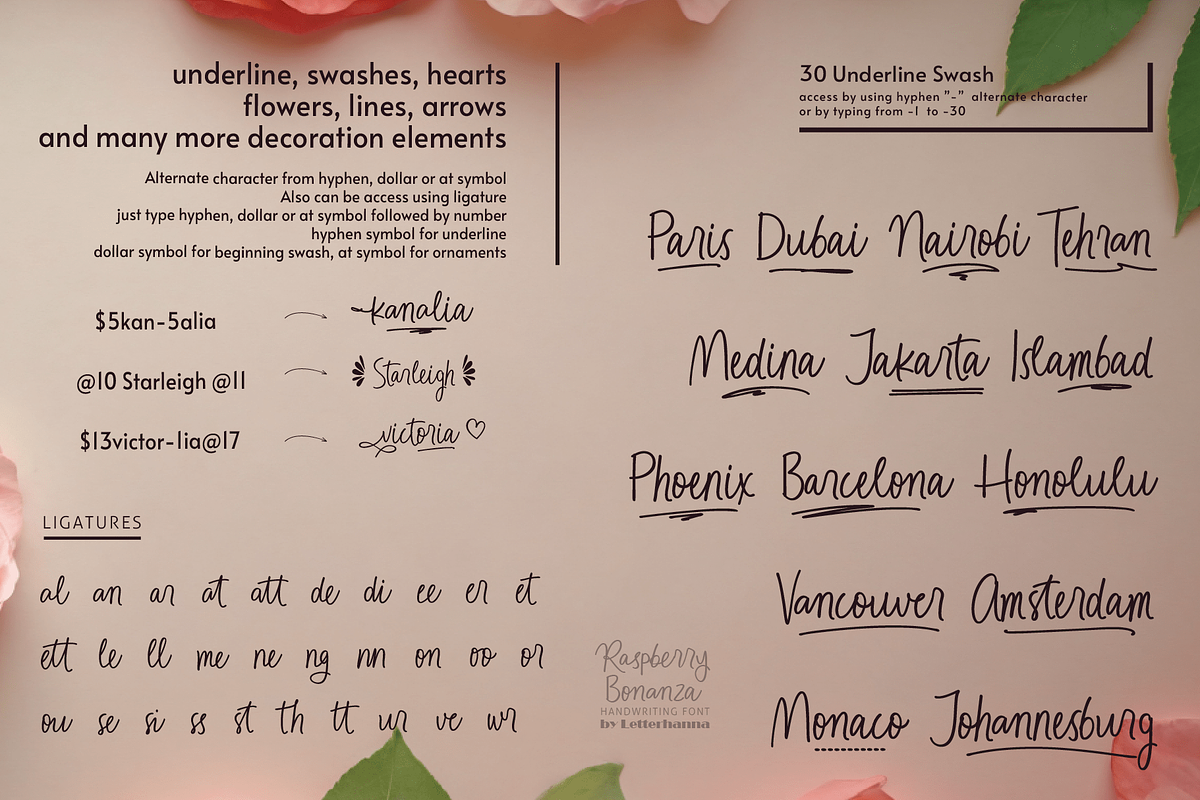 underline, swashes, hearts
flowers, lines, arrows
and many more decoration elements
Alternate character from hyphen, dollar or at symbol
Also can be access using ligature
just type hyphen, dollar or at symbol followed by number
hyphen symbol for underline
dollar symbol for beginning swash, at symbol for ornaments
$5kan-5alia kanalia
@10 Starleigh @11 Starleigh
$13victor-1ia@17 victoria
LIGATURES
al an ar at att de di ee er et
ett le ll me ne ng nn on oo or
ou se si ss st th tt ur ve wr
30 Underline Swash
access by using hyphen "-" alternate character
or by typing from -1 to -30
Paris Dubai Nairobi Tehran
Medina Jakarta Islambad
Phoenix Barcelona Honolulu
Vancouver Amsterdam
Monaco Johannesburg
Raspberry
Bonanza
HANDWRITING FONT
by Letterhanna